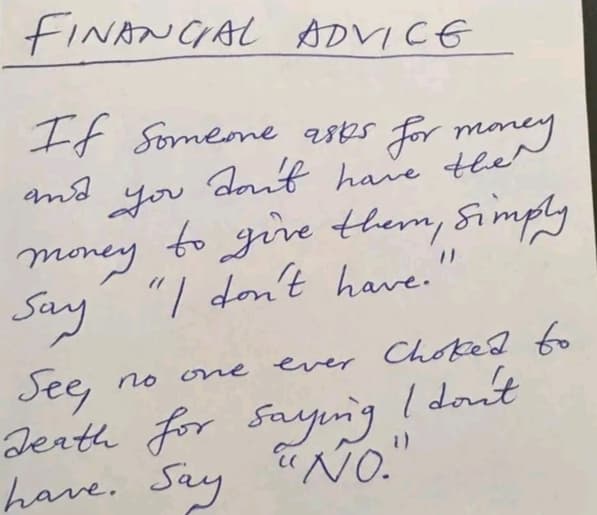 FINANCIAL ADVICE
If someone asks for money
and you don't have the
money to give them, simply
say "I don't have."
See, no one ever choked to
death for saying I don't
have. Say "NO."